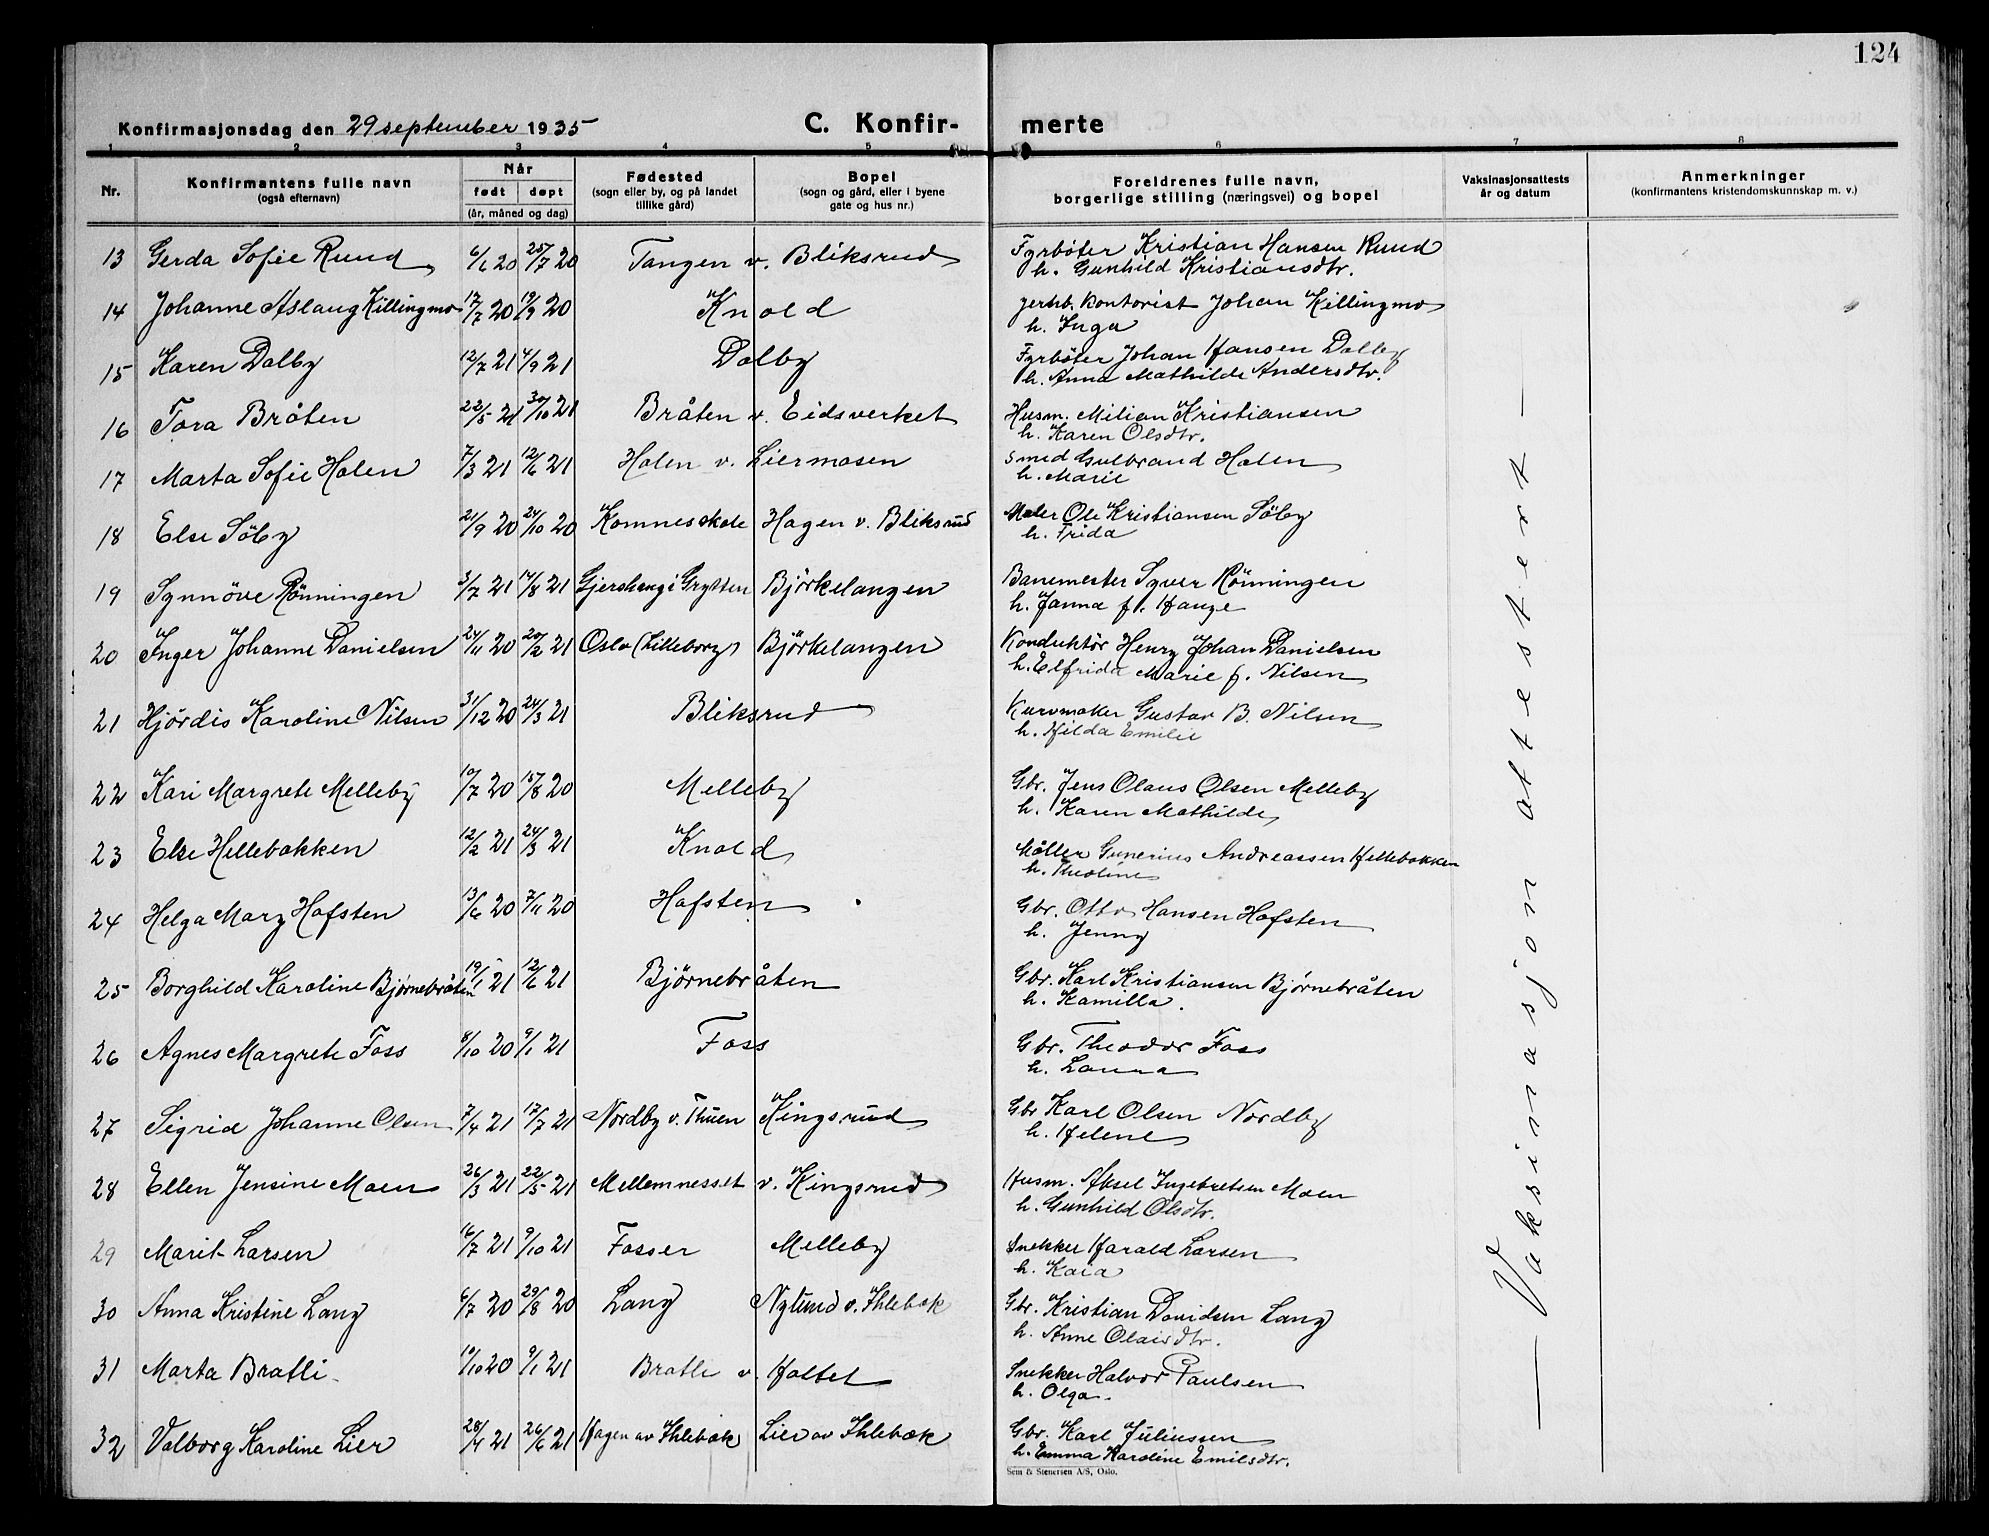 124
Konfirmasjonsdag den 29 september 1935 C. Konfir- merte
1 2 3 4 5 6 7 8
Nr. Konfirmantens fulle navn (også efternavn) Når født døpt (år, måned og dag) Fødested (sogn eller by, og på landet tillike gård) Bopel (sogn og gård, eller i byene gate og hus nr.) Foreldrenes fulle navn, borgerlige stilling (næringsvei) og bopel Vaksinasjonsattests år og datum Anmerkninger (konfirmantens kristendomskunnskap m. v.)
13 Gerda Sofie Ruud 6/6 20 25/7 20 Tangen v. Bliksrud Fyrbøter Kristian Hansen Ruud
h. Gunhild Kristiansdtr.
14 Johanne Aslaug Killingmo 17/7 20 19/9 20 Knold jernb. kontorist Johan Killingmo
h. Inga
15 Karen Dalby 12/7 21 4/9 21 Dalby Fyrbøter Johan Hansen Dalby
h. Anna Mathilde Andersdtr.
16 Tora Bråten 22/5 21 30/10 21 Bråten v. Eidsverket Husm. Milian Kristiansen
h. Karen Olsdtr.
17 Marta Sofie Holen 7/3 21 12/6 21 Holen v. Liermosen Smed Gulbrand Holen
h. Marie
18 Else Söby 21/9 20 24/10 20 Komnesskole Hagen v. Bliksrud Maler Ole Kristiansen Söby
h. Frida
19 Synnöve Rönningen 3/7 21 14/8 21 i Grytten Björkelangen Banemester Syver Rönningen
h. Janna f. Hauge
20 Inger Johanne Danielsen 24/11 20 20/2 21 Oslo (Lilleborg) Björkelangen Konduktör Henry Johan Danielsen
h. Elfrida Marie f. Nilsen
21 Hjördis Karoline Nilsen 31/12 20 24/3 21 Bliksrud Kurvmaker Gustav B. Nilsen
h. Hilda Emilie
22 Kari Margrete Melleby 10/7 20 15/8 20 Melleby Gbr. Jens Olaus Olsen Melleby
h. Karen Mathilde
23 Else Hellebakken 12/2 21 24/3 21 Knold Möller Gunerius Andreassen Hellebakken
h. Theoline
24 Helga Mary Hafsten 13/6 20 7/11 20 Hafsten Gbr. Otto Hansen Hafsten
h. Jenny
25 Borghild Karoline Bjørnebråten 19/1 21 12/6 21 Bjørnebråten Gbr. Karl Kristiansen Bjørnebråten
h. Kamilla.
26 Agnes Margrete Foss 8/10 20 9/1 21 Foss Gbr. Theodor Foss
h. Laura
27 Sigrid Johanne Olsen 7/4 21 17/7 21 Nordby v. Thuen Kingsrud Gbr Karl Olsen Nordby
h. Helene
28 Ellen Jensine Moen 26/3 21 22/5 21 Mellemnesset v. Kingsrud Husm. Aksel Ingebretsen Moen
h. Gunhild Olsdtr.
29 Marit Larsen 16/7 21 9/10 21 Fosser Melleby Snekker Harald Larsen
h. Kaia
30 Anna Kristine Lang 6/7 20 29/8 20 Lang Nylund v. Ihlebæk Gbr. Kristian Davidsen Lang
h. Anne Olaisdtr.
31 Marta Bratli 10/10 20 9/1 21 Bratli v. Haltet Snekker Halvor Paulsen
h. Olga
32 Valborg Karoline Lier 28/4 21 26/6 21 Hagen av Ihlebæk Lier av Ihlebæk Gbr. Karl Juliussen
h. Emma Karoline Emilsdtr.
— Vaksinasjon attestert —
Sem & Stenersen A/S, Oslo.